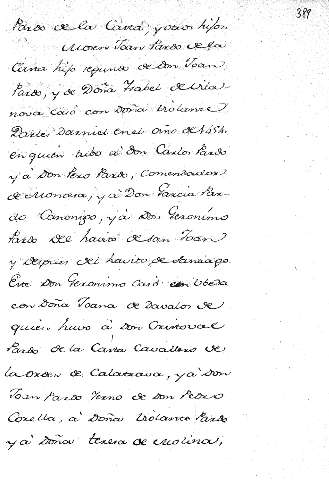 389
Pardo de la Casta; y otros hijos.
Mosen Joan Pardo de la
Casta hijo segundo de Don Joan
Pardo, y de Doña Ysabel de Vila
nova casó con Doña Violante
Darles Darniel en el año de 1454.
en quien tubo á Don Carlos Pardo
y á Don Pero Pardo, Comendador
de Montesa; y á Don Garcia Par-
do Canonigo, y á Don Geronimo
Pardo del havito de San Joan
y despues del havito de Santiago
Este Don Geronimo casó en Ubeda
con Doña Joana de Davalos de
quien huvo á Don Cristoval
Pardo de la Casta Cavallero de
la orden de Calatrava, y á Don
Joan Pardo Yerno de Don Pedro
Corella, á Doña Violante Pardo
y á Doña Teresa de Molina,